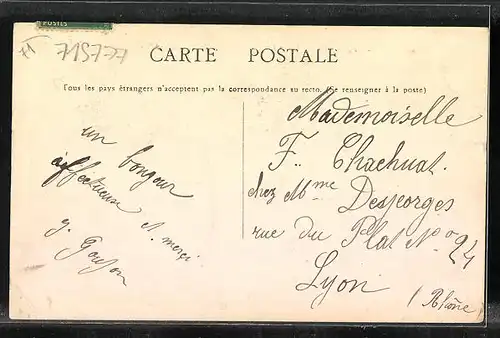 POSTES
71S777
CARTE POSTALE
Tous les pays étrangers n'acceptent pas la correspondance au recto. (Se renseigner à la poste)
un bonjour
affectueux
et merci
Mademoiselle
F.. Chachuat.
chez Mme Desgeorges
rue du Plat No 24
Lyon
(Rhône)